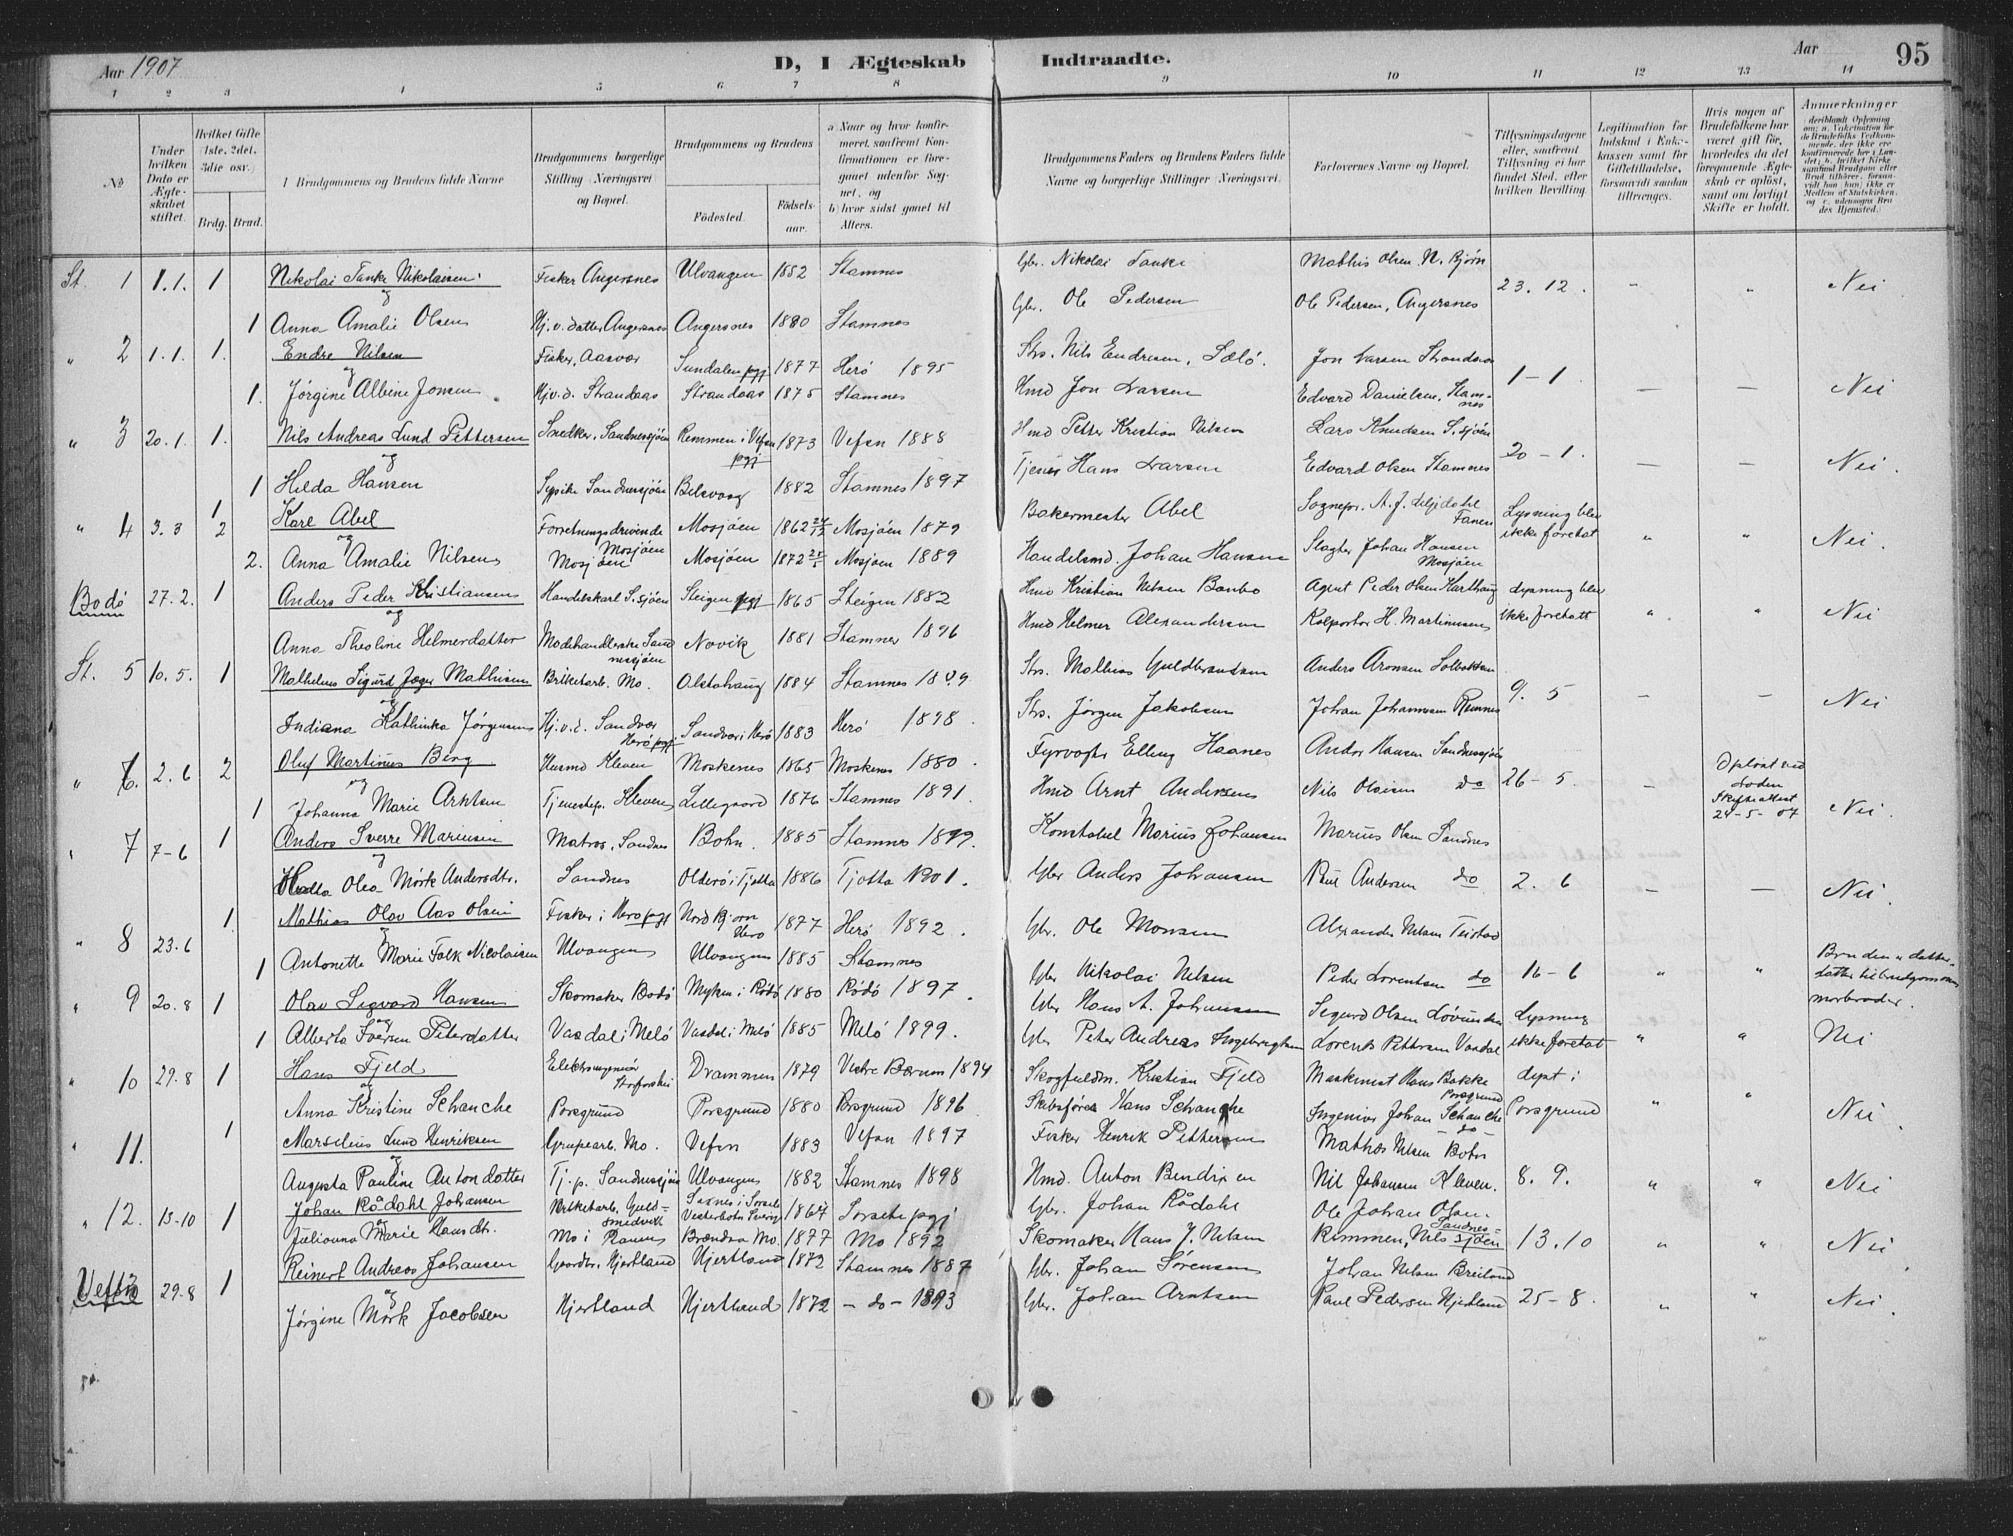 Aar 1907 D, I Ægteskab Indtraadte. Aar 95
1 2 3 4 5 6 7 8 9 10 11 12 13 14
No
Under hvilken Dato er Ægteskabet stiftet.
Hvilket Gifte (1ste, 2det, 3die osv.)
Brdg. Brud.
1 Brudgommens og Brudens fulde Navne
Brudgommens borgerlige Stilling (Næringsvei) og Bopæl.
Brudgommens og Brudens
Födested. Födselsaar.
a) Naar og hvor konfirmeret, saafremt Konfirmationen er foregaaet udenfor Sognet, og
b) hvor sidst gaaet til Alters.
Brudgommens Faders og Brudens Faders fulde Navne og borgerlige Stillinger (Næringsvei.
Forlovernes Navne og Bopæl.
Tillysningsdagene eller, saafremt Tillysning ei har fundet Sted, efter hvilken Bevilling.
Legitimation for Indskud i Enkekassen samt for Giftetilladelse, forsaavidt saadan tiltrænges.
Hvis nogen af Brudefolkene har været gift för, hvorledes da det foregaaende Ægteskab er oplöst, samt om lovligt Skifte er holdt.
Anmærkninger
St. 1 1.1. 1 Nikolai Tanke Nikolaisen Fisker Angersnes Ulvangen 1882 Stamnes Gbr. Nikolai Tanke Mathis Olsen N. Bjørn 23. 12. " " Nei
og
1 Anna Amalie Olsen Hj.v. datter Angersnes Angersnes 1880 Stamnes Gbr. Ole Pedersen Ole Pedersen, Angersnes
" 2 1.1. 1. Endre Nilsen Fisker, Aasvær Sundalen pgj 1877 Herö 1895 Strs. Nils Endresen, Sælö. Jon Larsen Strandaas 1-1. — — Nei
og
1. Jørgine Albine Jonsen Hj.v.d. Strandaas Strandaas 1875 Stamnes Hmd Jon Larsen Edvard Danielsen, Stamnes
" 3 20.1. 1. Nils Andreas Lund Pettersen Snedker, Sandnessjöen Remmen i Vefsn pgj 1873 Vefsn 1888 Hmd Petter Kristian Nilsen Lars Knudsen S.sjöen 20-1. — — Nei.
og
1 Hilda Hansen Sypike Sandnessjöen Belsvaag 1882 Stamnes 1897 Tjener Hans Larsen Edvard Olsen Stamnes
" 4 3.3 1 2 Karl Abel Forretningsdrivende Mosjöen Mosjöen 1862 Mosjöen 1879 Bakermester Abel Sognepr. A. J. Liljedahl Fanen Lysning blev ikke foretat " " Nei.
og
2. Anna Amalie Nilsen Mosjöen Mosjöen 1872 Mosjöen 1889 Handelsmd. Johan Hansen Slagter Johan Hansen Mosjöen
Bodö 27.2. 1 Anders Peder Kristiansen Handelskarl S.sjöen Steigen pgj 1865 Steigen 1882 Hmd Kristian Nilsen Agent Peder Olsen Lysning blev ikke foretatt " " Nei
og
Anna Theoline Helmerdatter Modehandlerske Sandnessjöen Novik 1881 Stamnes 1896 Hmd Helmer Alexandersen Kolportør H. Martinusen
St. 5 10.5. 1 Mathelius Sigurd Jæger Mathisen Briketarb. Mo. Alstahaug 1884 Stamnes Strs. Mathias Guldbrandsen Anders Aronsen 9. 5 — — Nei
og
Indiana Kathinka Jørgensen Hj.v.d. Sandvær Herö pgj Sandvær i Herö 1883 Herö 1898. Strs. Jørgen Jakobsen Johan Johannesen Remnes
" 6. 2.6 2 Oluf Martinus Berg Husmd Kleven Moskenes 1865 Moskenes 1880. Fyrvogter Elling Haanes Andor Hansen Sandnessjöen 26-5. — Oplöst ved Döden Skifteattest 24-5-07 Nei.
og
1 Johanna Marie Arntsen Tjenestep. Kleven Lillegaard 1876 Stamnes 1891. Hmd Arnt Andersen Nils Olaisen do
" 7 7-6 1 Anders Sverre Mariusen Matros, Sandnes Bohn 1885 Stamnes 1899. Konstabel Marius Johansen Marius Olsen Sandnes 2. 6 — — Nei.
og
Olea Mörk Andersdtr. Sandnes Olderö i Tjotta 1886 Tjotta 1901. Gbr Anders Johansen Paul Andersen do
" 8 23.6 1 Mathias Olav Aas Olsen Fisker i Herö pgj Nord Bjørn Herö 1877 Herö 1892. Gbr. Ole Monsen Alexander Nilsen 16-6 " " Bruden e datterdatter til brudgommens morbroder.
og
1 Antonette Marie Falk Nicolaisen Ulvangen Ulvangen 1885 Stamnes Gbr Nikolai Nilsen Peder Lorentsen do
" 9 20.8 1 Olav Sigvard Hansen Skomaker Bodö Myken i Rödö 1880 Rödö 1897. Gbr Hans A. Johansen Sigurd Olsen Lovunden Lysning ikke foretat " " Nei
og
1 Alberta Iversen Petersdatter Vasdal i Melö Vasdal i Melö 1885 Melö 1899. Gbr Peter Andreas Ingebrigtsen Lorents Pettersen Vasdal
" 10 29.8 1 Hans Fjeld Drammen 1879 Vestre Bærum 1894 Skogfuldm. Kristian Fjeld Maskinist Hans Bakke Porsgrund Lyst i Porsgrund " " Nei
og
Anna Kristine Schanche Porsgrund Porsgrund 1880 Porsgrund 1896 Skibsförer Hans Schanche Ingeniør Johan Schanche do
" 11. 1 Marselius Lund Henriksen Grupearb. Mo. Vefsn 1883 Vefsn 1897 Fisker Henrik Pettersen Mathias Nilsen Bohn 8. 9. " " Nei
og
Augusta Pauline Antondatter Tj.p. Sandnessjöen Ulvangen 1882 Stamnes 1898 Hmd. Anton Bendixen Nil Johansen Kleven.
" 12. 13-10 1 Johan Rådahl Johansen Briketarb. Guldsmedvik 1867 Sorsele pgj Gbr. Johan Rådahl Ole Johan Olsen 13.10 " " Nei
og
Julianna Marie Hansdtr. Mo i Ranen Brændsa Mo. 1877 Mo 1892 Skomaker Hans J. Nilsen Remmen, Nils Sandnessjöen
Vefsn 29.8 1 Reinert Andreas Johansen Gaardbr. Hjertland Hjertland 1872 Stamnes 1887 Gbr. Johan Sørensen Johan Nilsen Breiland 25-8. " " Nei.
og
Jørgine Mörk Jacobsen Hjertland Hjertland 1872 - do - 1893 Gbr. Johan Arntsen Paul Pedersen Hjertland